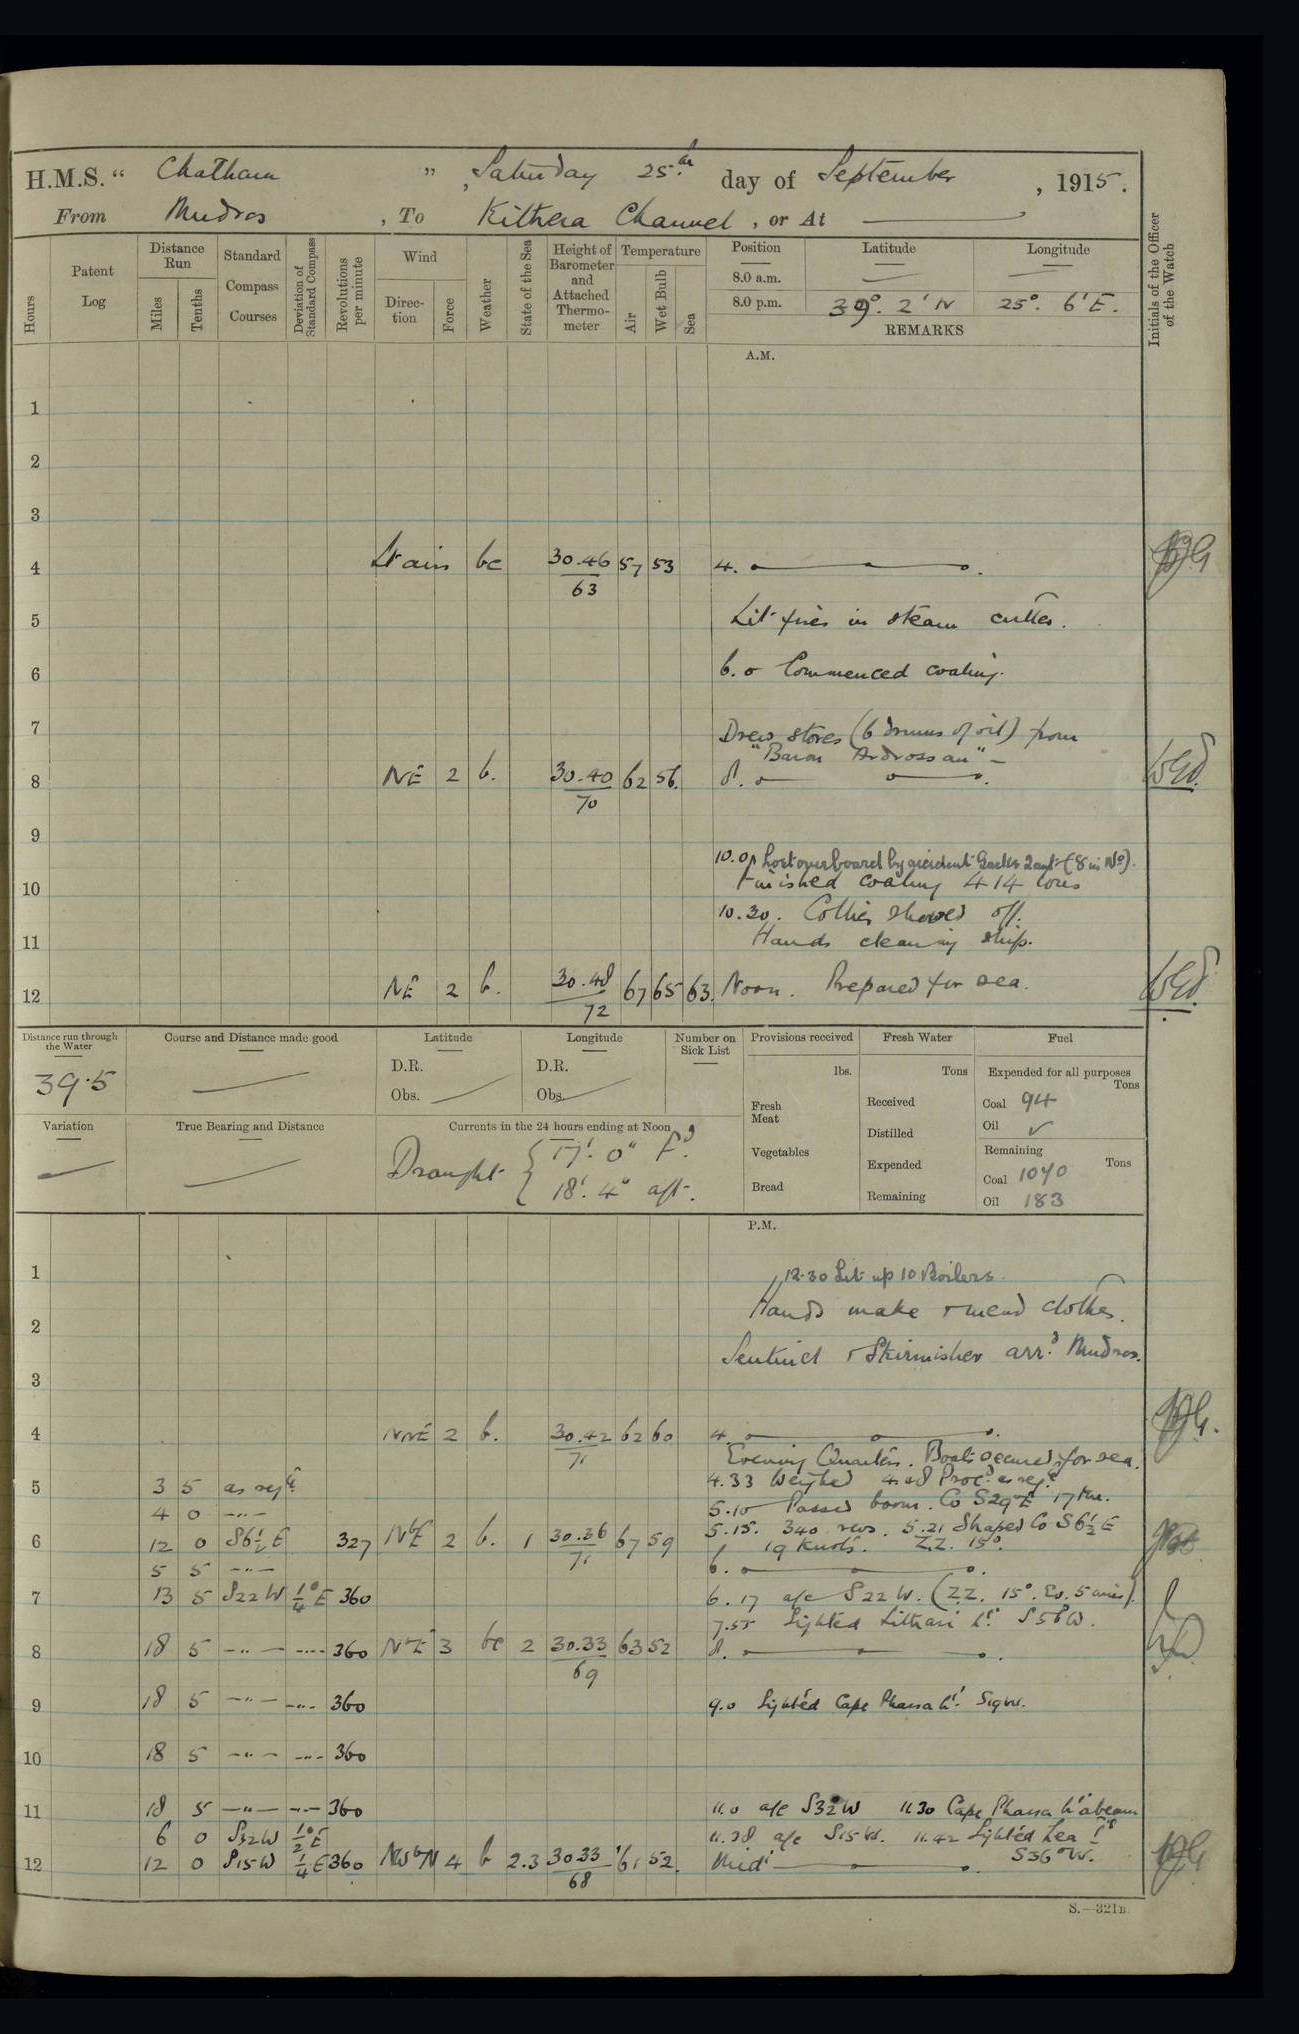 H.M.S. “ Chatham ” , Saturday 25th day of September , 1915.
From Mudros , To Kithera Channel , or At
Hours
Patent Log
Distance Run
Miles
Tenths
Standard Compass Courses
Deviation of Standard Compass
Revolutions per minute
Wind
Direction
Force
Weather
State of the Sea
Height of Barometer and Attached Thermometer
Temperature
Air
Wet Bulb
Sea
Position
8.0 a.m.
8.0 p.m.
Latitude
39°. 2' N
Longitude
25°. 6' E.
REMARKS
Initials of the Officer of the Watch
A.M.
1
2
3
4 Lt airs bc 30.46 63 57 53 4.
5 Lit fires in steam cutter.
6 6.0 Commenced coaling.
7 Drew stores (6 drums of oil) from
"Baron Ardrossan" –
8 NE 2 b. 30.40 70 62 56. 8.
9
10.0 Lost overboard by accident (8 in No).
10 Finished coaling 414 tons
10.30. Collier shoved off.
11 Hands cleaning ship.
12 NE 2 b. 30.48 72 67 65 63. Noon. Prepared for sea.
Distance run through the Water
39.5
Course and Distance made good
Latitude
D.R.
Obs.
Longitude
D.R.
Obs.
Number on Sick List
Provisions received
lbs.
Fresh Meat
Vegetables
Bread
Fresh Water
Tons
Received
Distilled
Expended
Remaining
Fuel
Expended for all purposes
Tons
Coal 94
Oil ✓
Remaining
Tons
Coal 1040
Oil 183
Variation
True Bearing and Distance
Currents in the 24 hours ending at Noon
Draught { 17'. 0" Fd.
18'. 4" aft.
P.M.
1 12.30 Lit up 10 Boilers.
Hands make & mend clothes.
2
Sentinel & Skirmisher arrd. Mudros.
3
4 NNE 2 b. 30.42 71 62 60 4.
Evening Quarters. Boats secured for sea.
5 3 5 as req. 4.33 Weighed 4.48 Procd. as req.
4 0 –"– 5.10 Passed boom. Co S29°E 17 Kn.
6 12 0 S6½E 327 NbE 2 b. 1 30.36 71 67 59 5.15. 340 revs. 5.21 Shaped Co S6½E
19 Knots. Z.Z. 15°.
5 5 –"– 6.
7 13 5 S22W ¼°E 360 6.17 a/c S22W. (Z.Z. 15°. Ev. 5 mins).
7.55 Sighted Lithari Lt. S58W.
8 18 5 –"– –"– 360 NbE 3 bc 2 30.33 69 63 52 8.
9 18 5 –"– –"– 360 9.0 Sighted Cape Phassa Lt. S19W.
10 18 5 –"– –"– 360
11 18 5 –"– –"– 360 11.0 a/c S32W 11.30 Cape Phassa Lt abeam
6 0 S32W ½°E 11.38 a/c S15W. 11.42 Sighted Lea Lt
12 12 0 S15W ¼E 360 NWbN 4 b 2.3 30.33 68 61 52. Midt S36°W.
S.—321B.